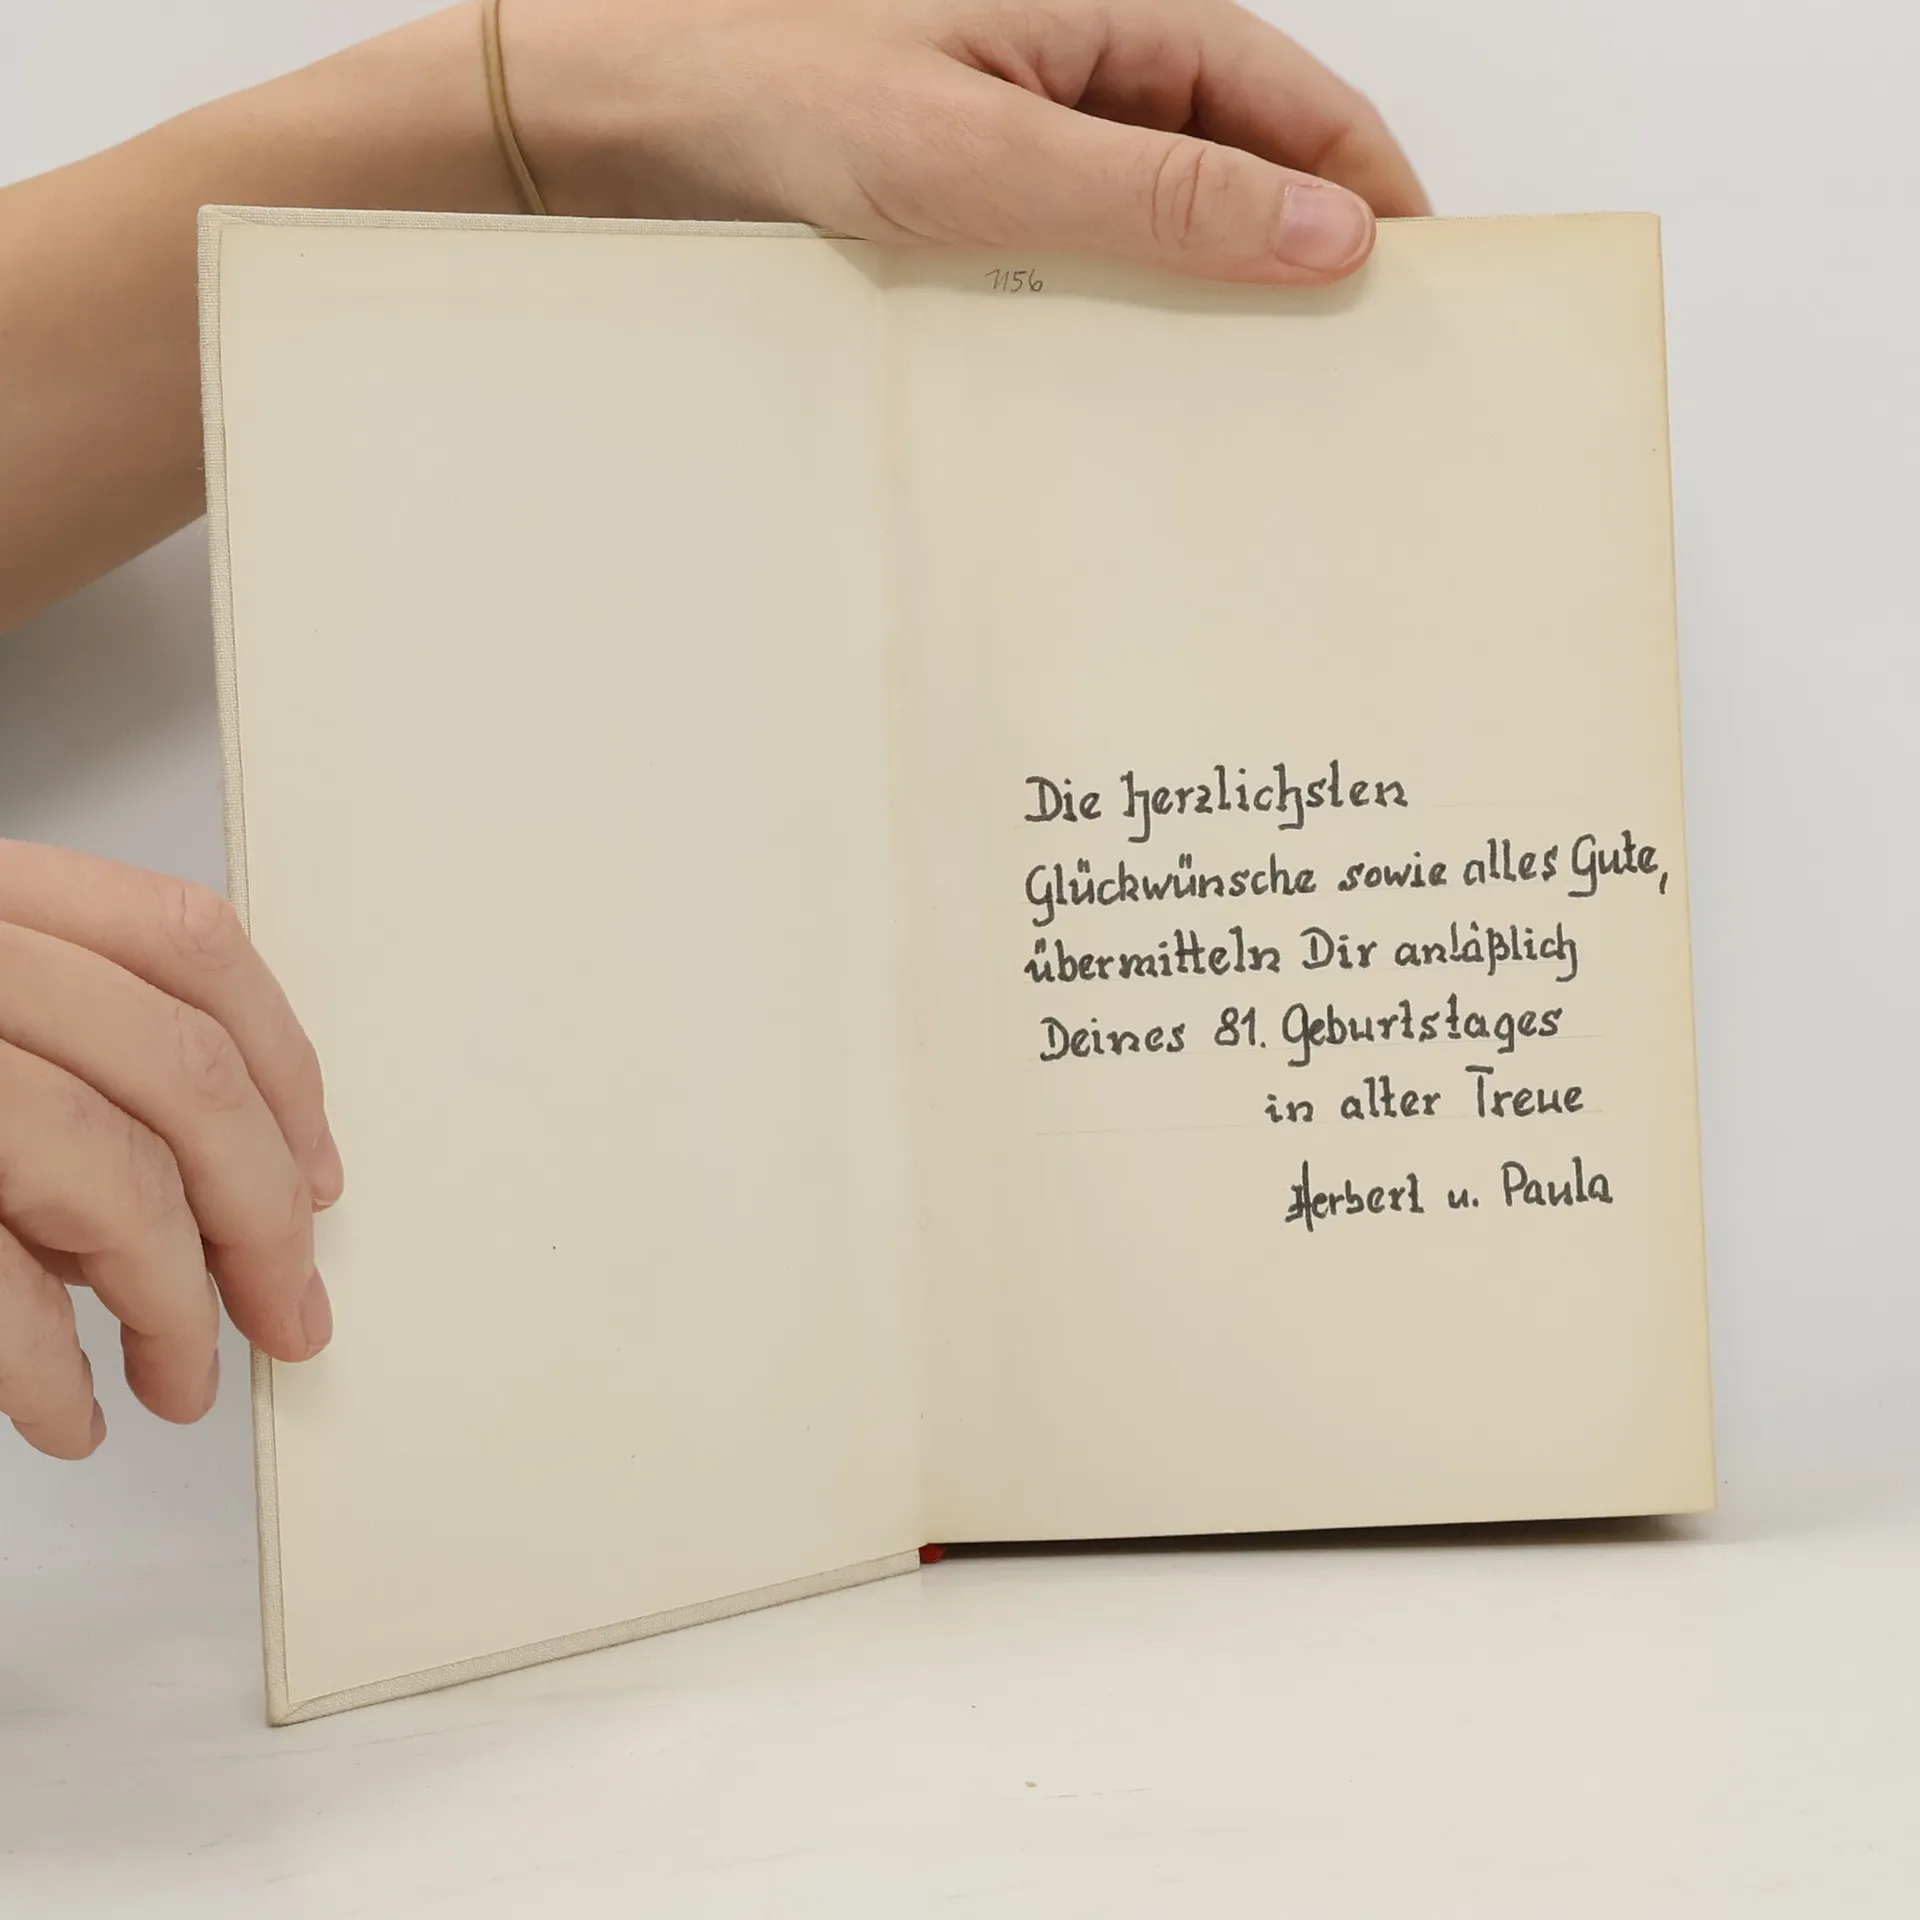 1156
Die herzlichsten
Glückwünsche sowie alles Gute,
übermitteln Dir anläßlich
Deines 81. Geburtstages
in alter Treue
Herbert u. Paula